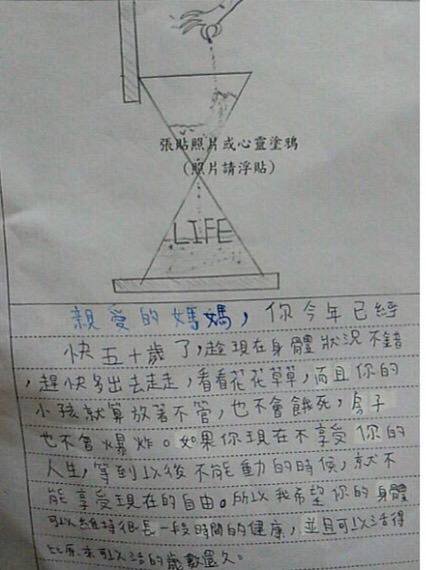 張貼照片或心靈塗鴉
(照片請浮貼)
LIFE
親愛的媽媽，你今年已經
快五十歲了，趁現在身體狀況不錯
，趕快多出去走走，看看花花草草，而且你的
小孩就算放著不管，也不會餓死，房子
也不會爆炸。如果你現在不享受你的
人生，等到以後不能動的時候，就不
能享受現在的自由。所以我希望你的身體
可以維持很長一段時間的健康，並且可以活得
比原本可以活的歲數還久。